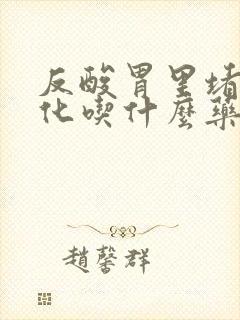 反酸胃里堵
化喫什麼藥
趙馨群